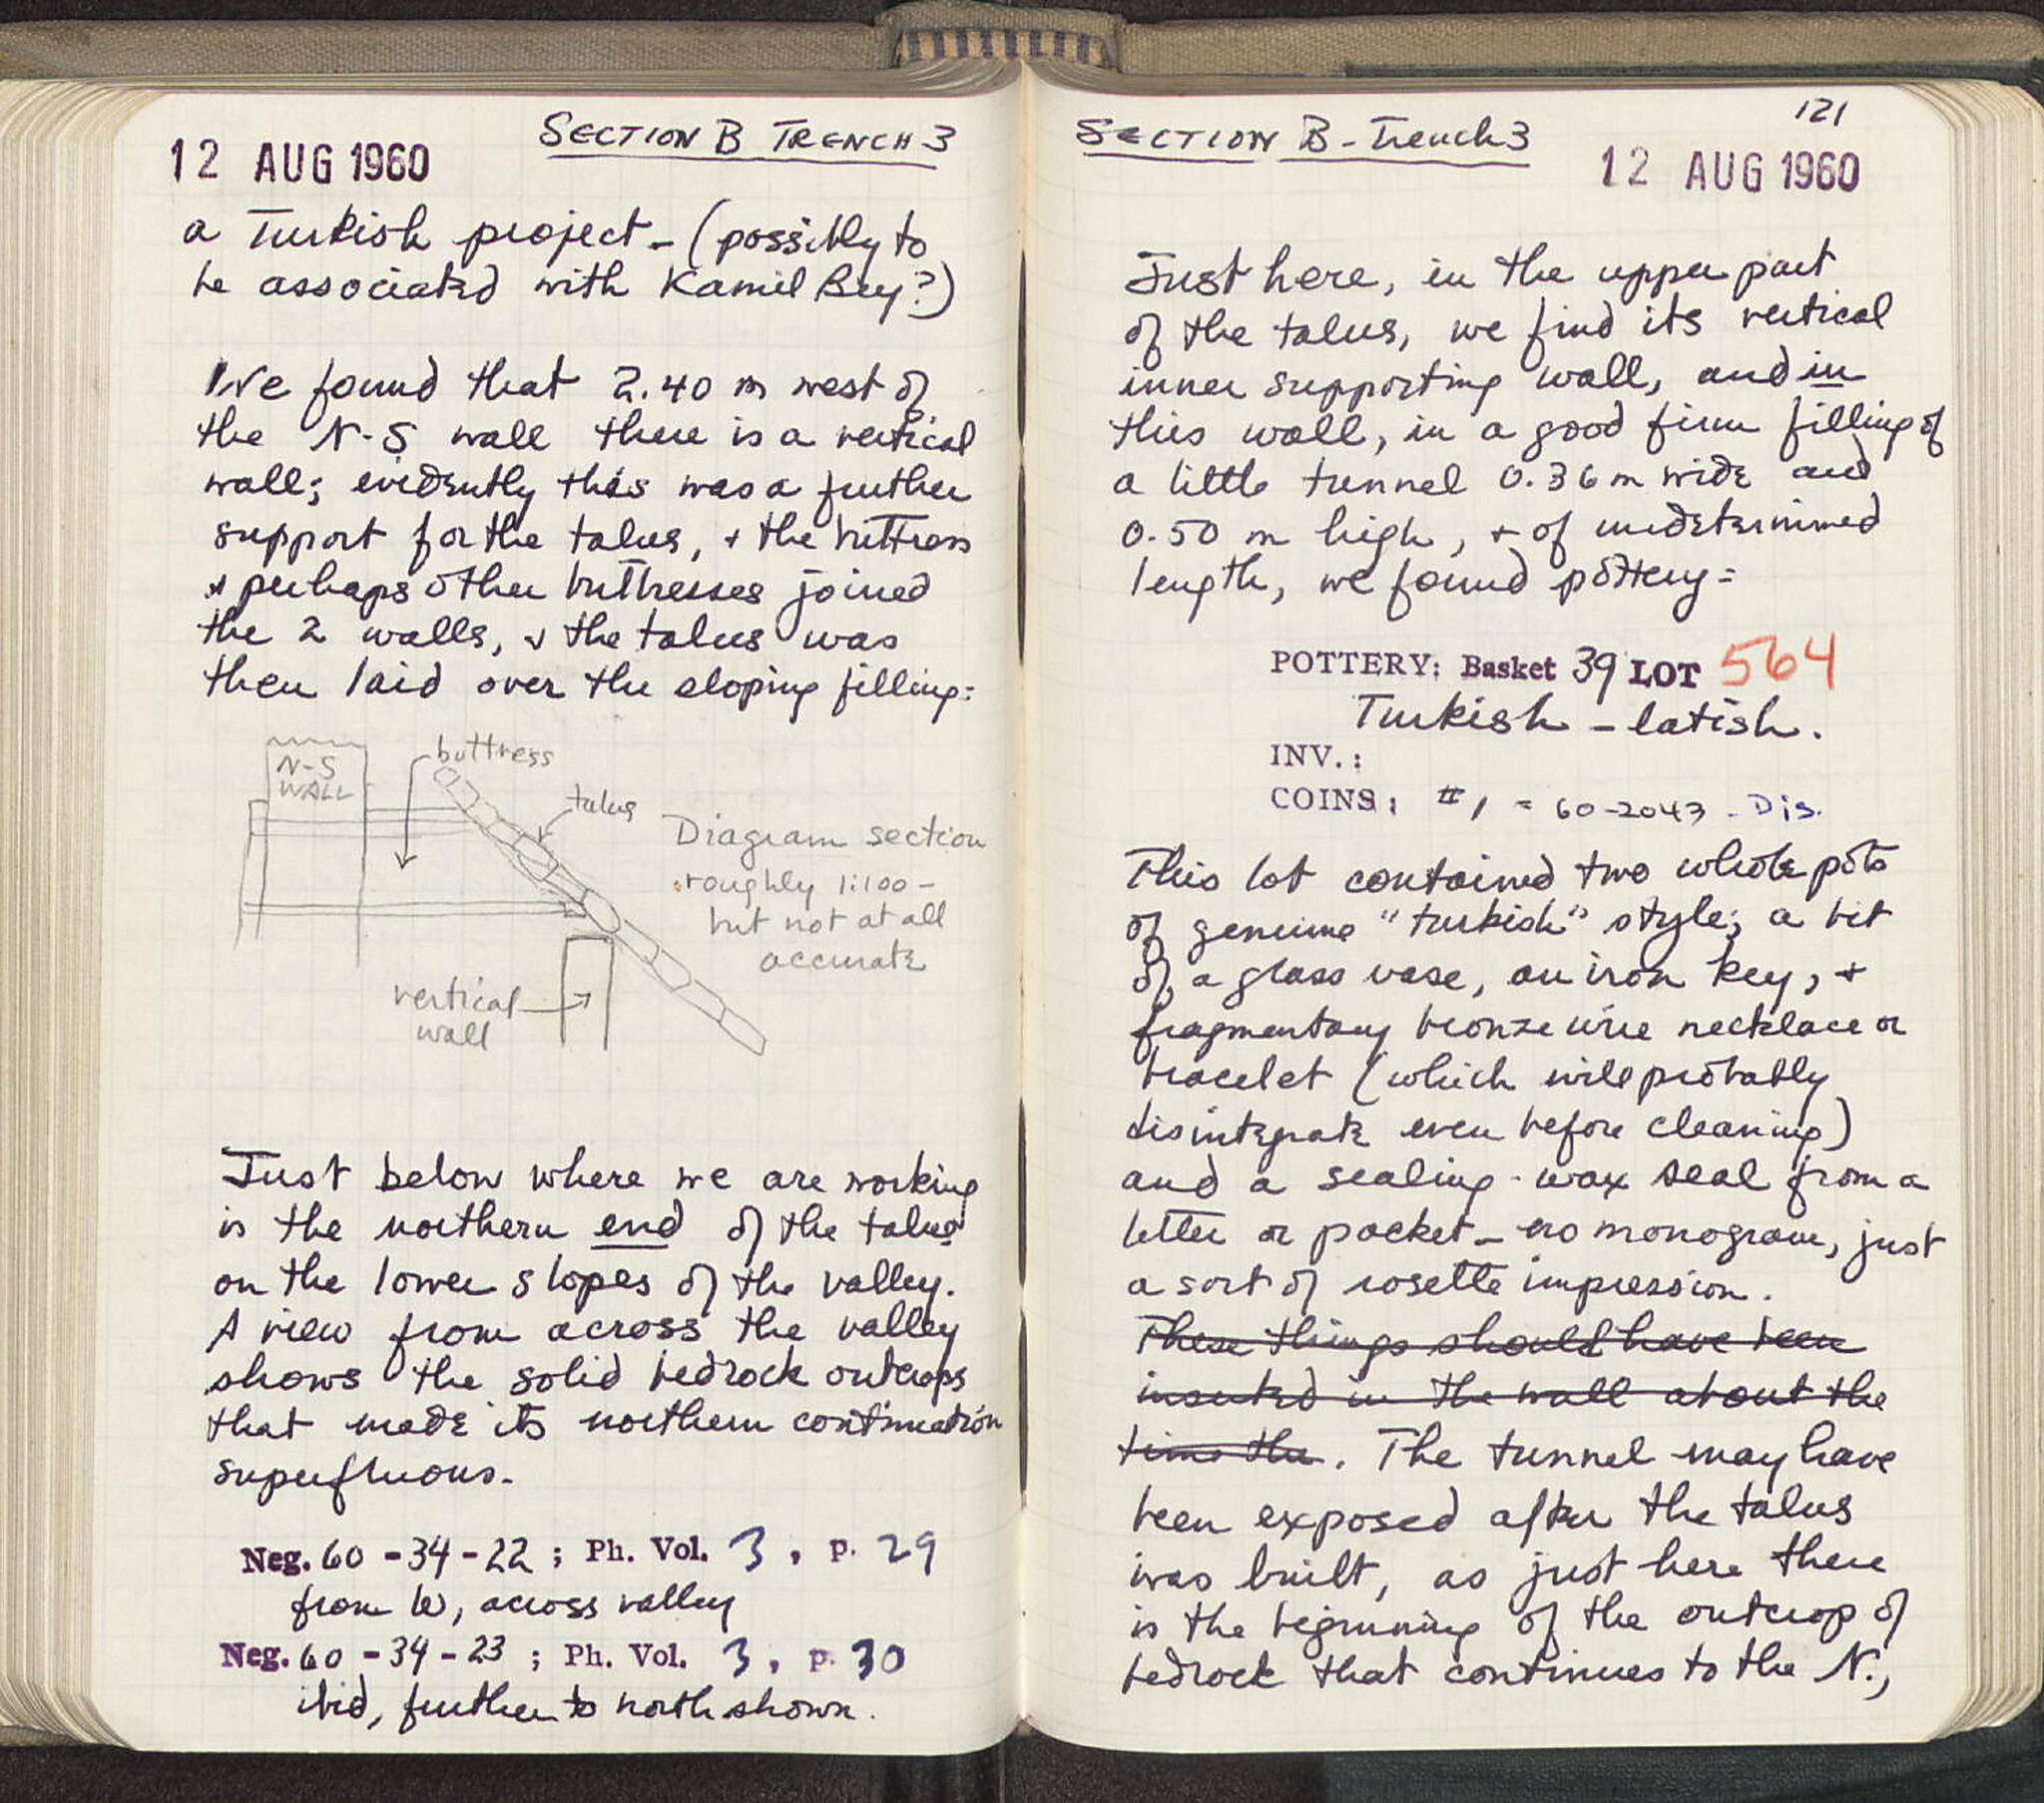 12 AUG 1960
SECTION B TRENCH 3
a Turkish project - (possibly to
be associated with Kamil Bey?)
We found that 2.40 m west of
the N-S wall there is a vertical
wall; evidently this was a further
support for the talus, + the buttress
+ perhaps other buttresses joined
the 2 walls, + the talus was
then laid over the sloping filling:
N-S
WALL
buttress
talus
Diagram section
roughly 1:100 -
but not at all
accurate
vertical
wall
Just below where we are working
is the northern end of the talus
on the lower slopes of the valley.
A view from across the valley
shows the solid bedrock outcrops
that made its northern continuation
superfluous.
Neg. 60 - 34 - 22 ; Ph. Vol. 3 , p. 29
from W, across valley
Neg. 60 - 34 - 23 ; Ph. Vol. 3 , p. 30
ibid, further to north shown.
121
SECTION B - Trench 3
12 AUG 1960
Just here, in the upper part
of the talus, we find its vertical
inner supporting wall, and in
this wall, in a good firm filling of
a little tunnel 0.36 m wide and
0.50 m high, + of undetermined
length, we found pottery =
POTTERY: Basket 39 LOT 564
Turkish - latish.
INV.:
COINS: # 1 = 60-2043 - Dis.
This lot contained two whole pots
of genuine "turkish" style; a bit
of a glass vase, an iron key, +
fragmentary bronze wire necklace or
bracelet (which will probably
disintegrate even before cleaning)
and a sealing-wax seal from a
letter or packet - no monogram, just
a sort of rosette impression.
These things should have been
inserted in the wall about the
time the. The tunnel may have
been exposed after the talus
was built, as just here there
is the beginning of the outcrop of
bedrock that continues to the N.,